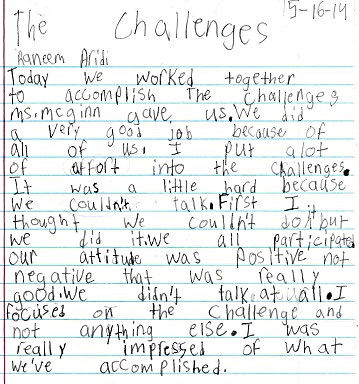 The Challenges 5-16-14
Raneem Aridi
Today we worked together
to accomplish The challenges
ms.mcginn gave us.We did
a very good job because of
all of us. I put alot
of affort into the challenges.
It was a little hard because
we couldn't talk.First I
thought we couldn't do it but
we did it.we all participated
our attitude was Positive not
negative that was really
good.We didn't talk at all.I
focused on the challenge and
not anything else.I was
really impressed of what
we've accomplished.